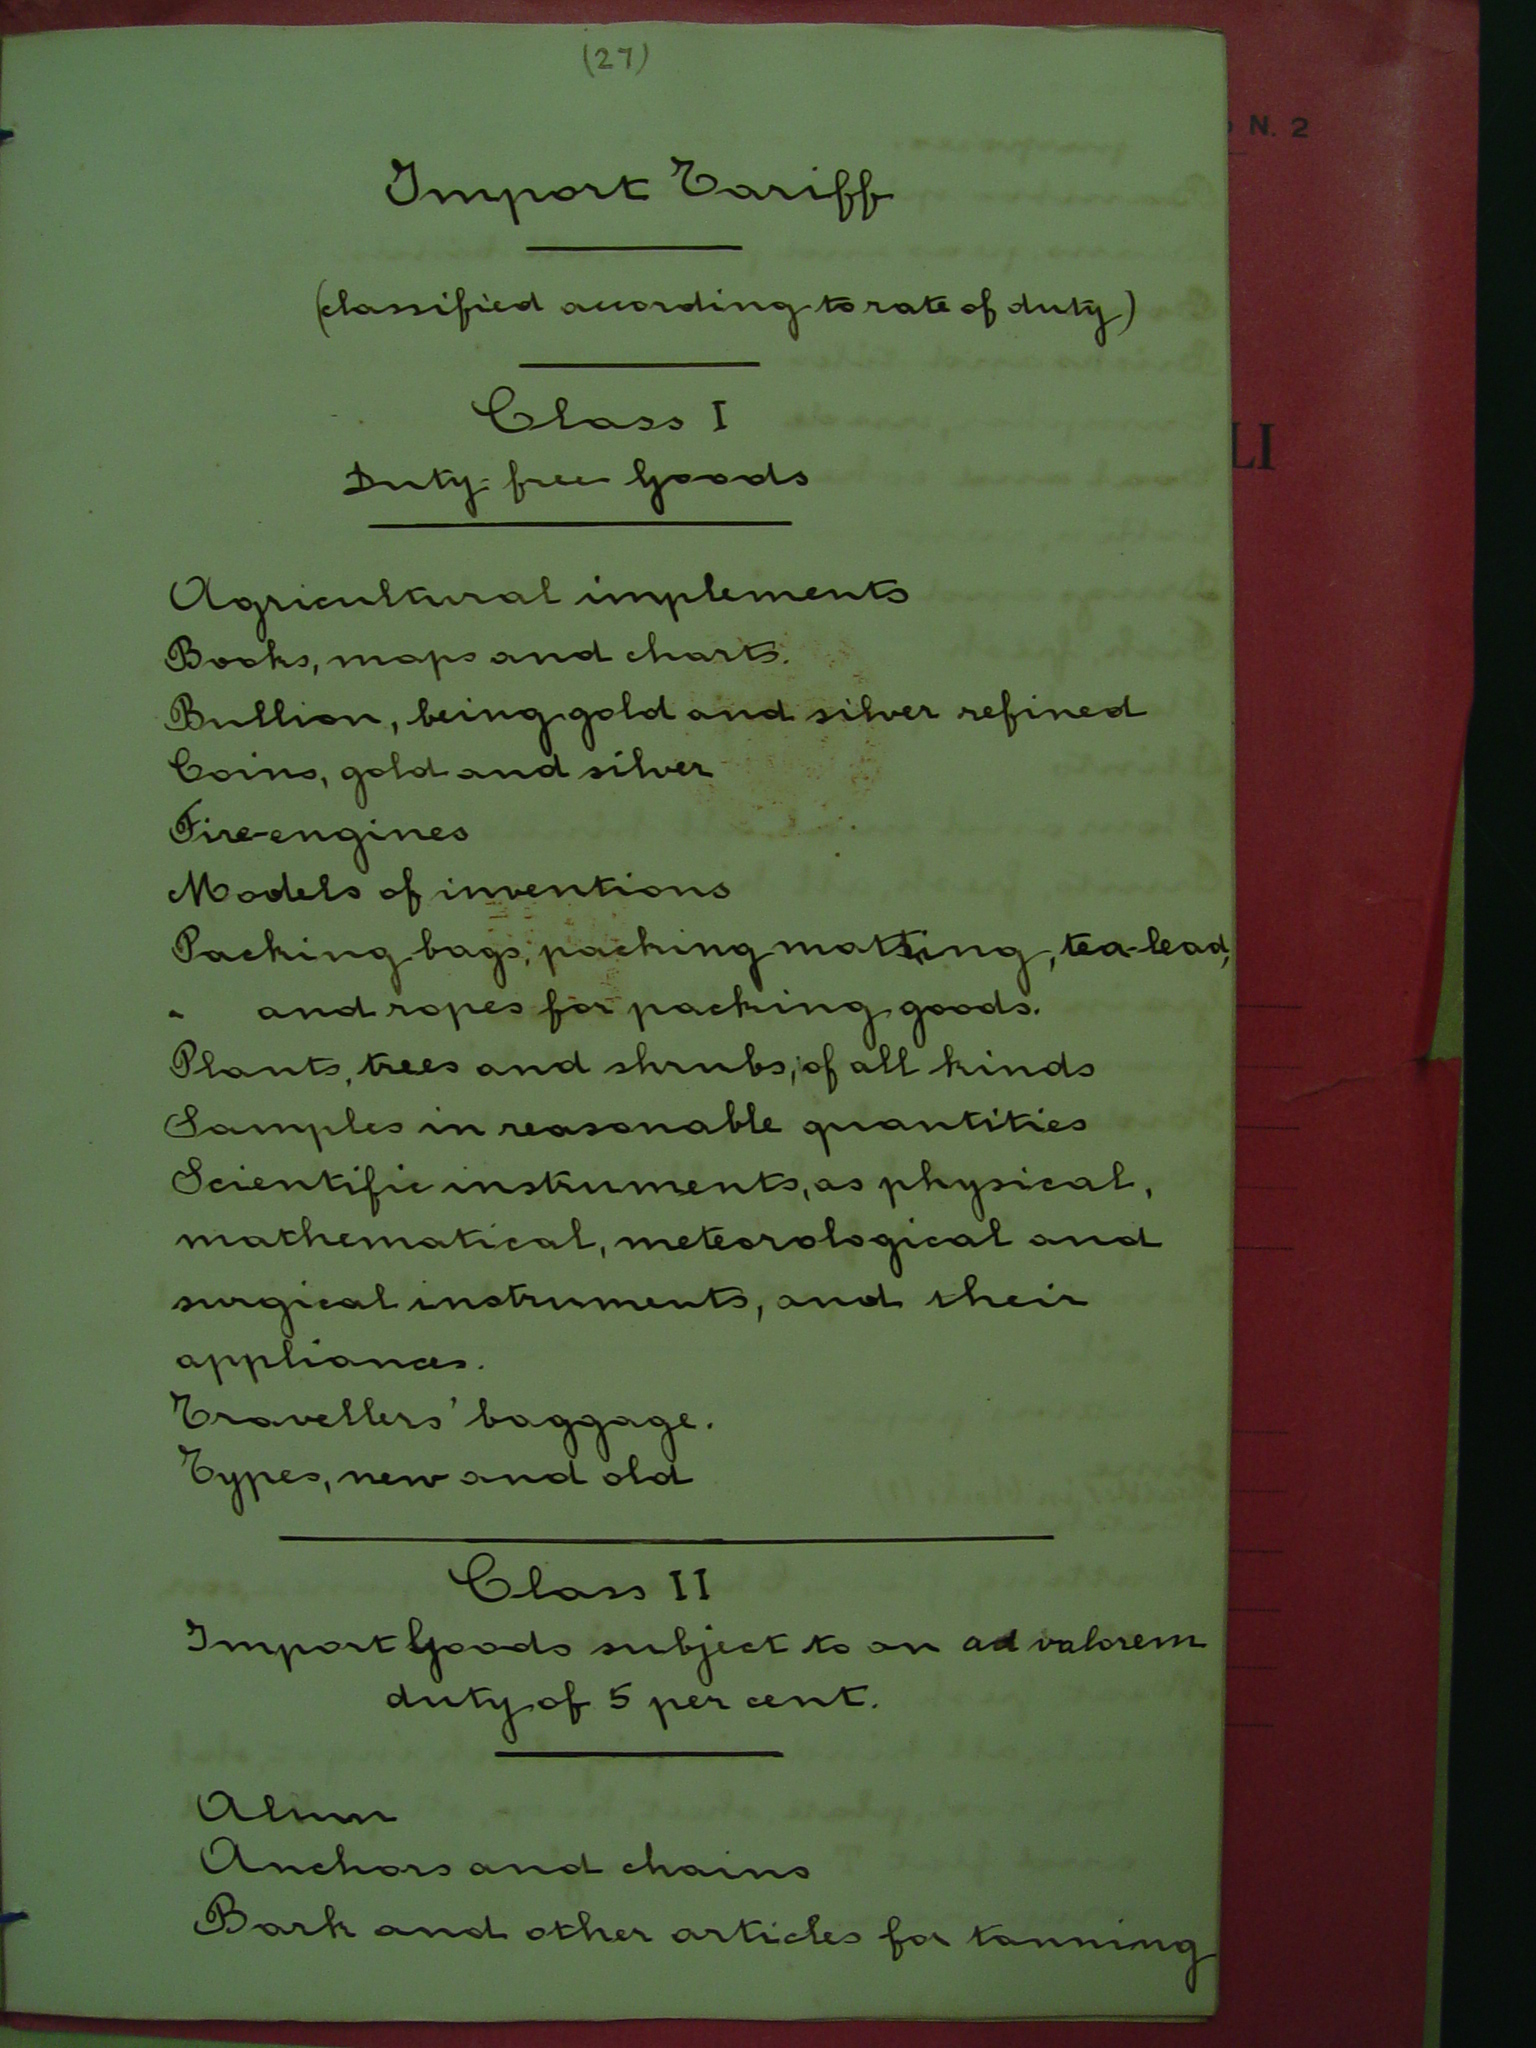 (27)
Import Tariff
(classified according to rate of duty)
Class I
Duty-free Goods
Agricultural implements
Books, maps and charts.
Bullion, being gold and silver refined
Coins, gold and silver
Fire-engines
Models of inventions
Packing bags, packing matting, tea-lead,
" and ropes for packing goods.
Plants, trees and shrubs, of all kinds
Samples in reasonable quantities
Scientific instruments, as physical,
mathematical, meteorological and
surgical instruments, and their
appliances.
Travellers' baggage.
Types, new and old
Class II
Import Goods subject to an ad valorem
duty of 5 per cent.
Alum
Anchors and chains
Bark and other articles for tanning
N. 2
LI